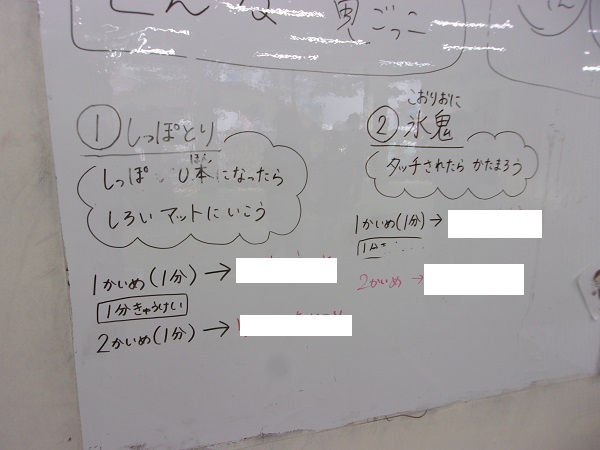 鬼ごっこ
① しっぽとり
しっぽ 0本になったら
ほん
しろいマットにいこう
1かいめ(1分)→
1分きゅうけい
2かいめ(1分)→
こおりおに
② 氷鬼
タッチされたら かたまろう
1かいめ(1分)→
1分
2かいめ →